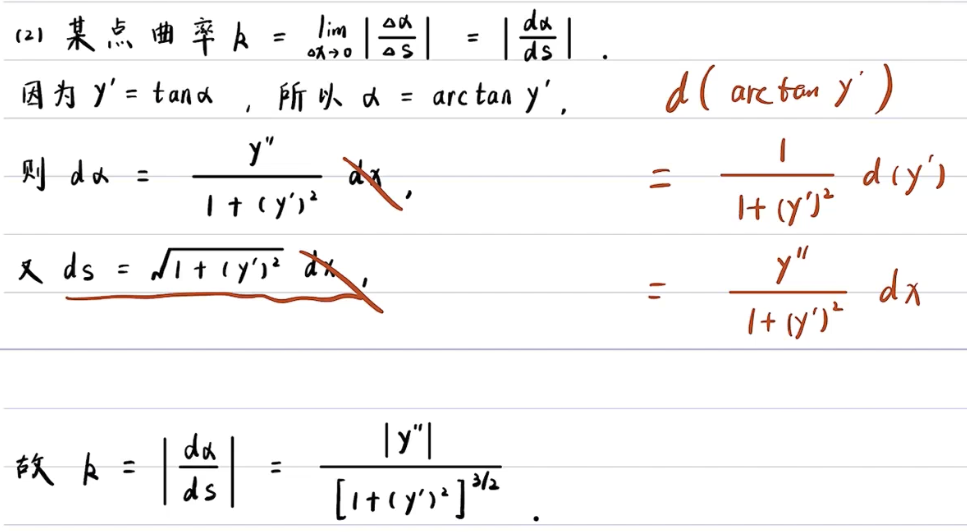 (2) 某点曲率 k = lim_{Δx→0} |Δα/Δs| = |dα/ds| .
因为 y' = tanα , 所以 α = arctan y' , d( arctan y' )
则 dα = y''/(1 + (y')²) dx , = 1/(1+(y')²) d(y')
又 ds = √(1 + (y')²) dx , = y''/(1+(y')²) dx
故 k = |dα/ds| = |y''|/[1+(y')²]^{3/2} .